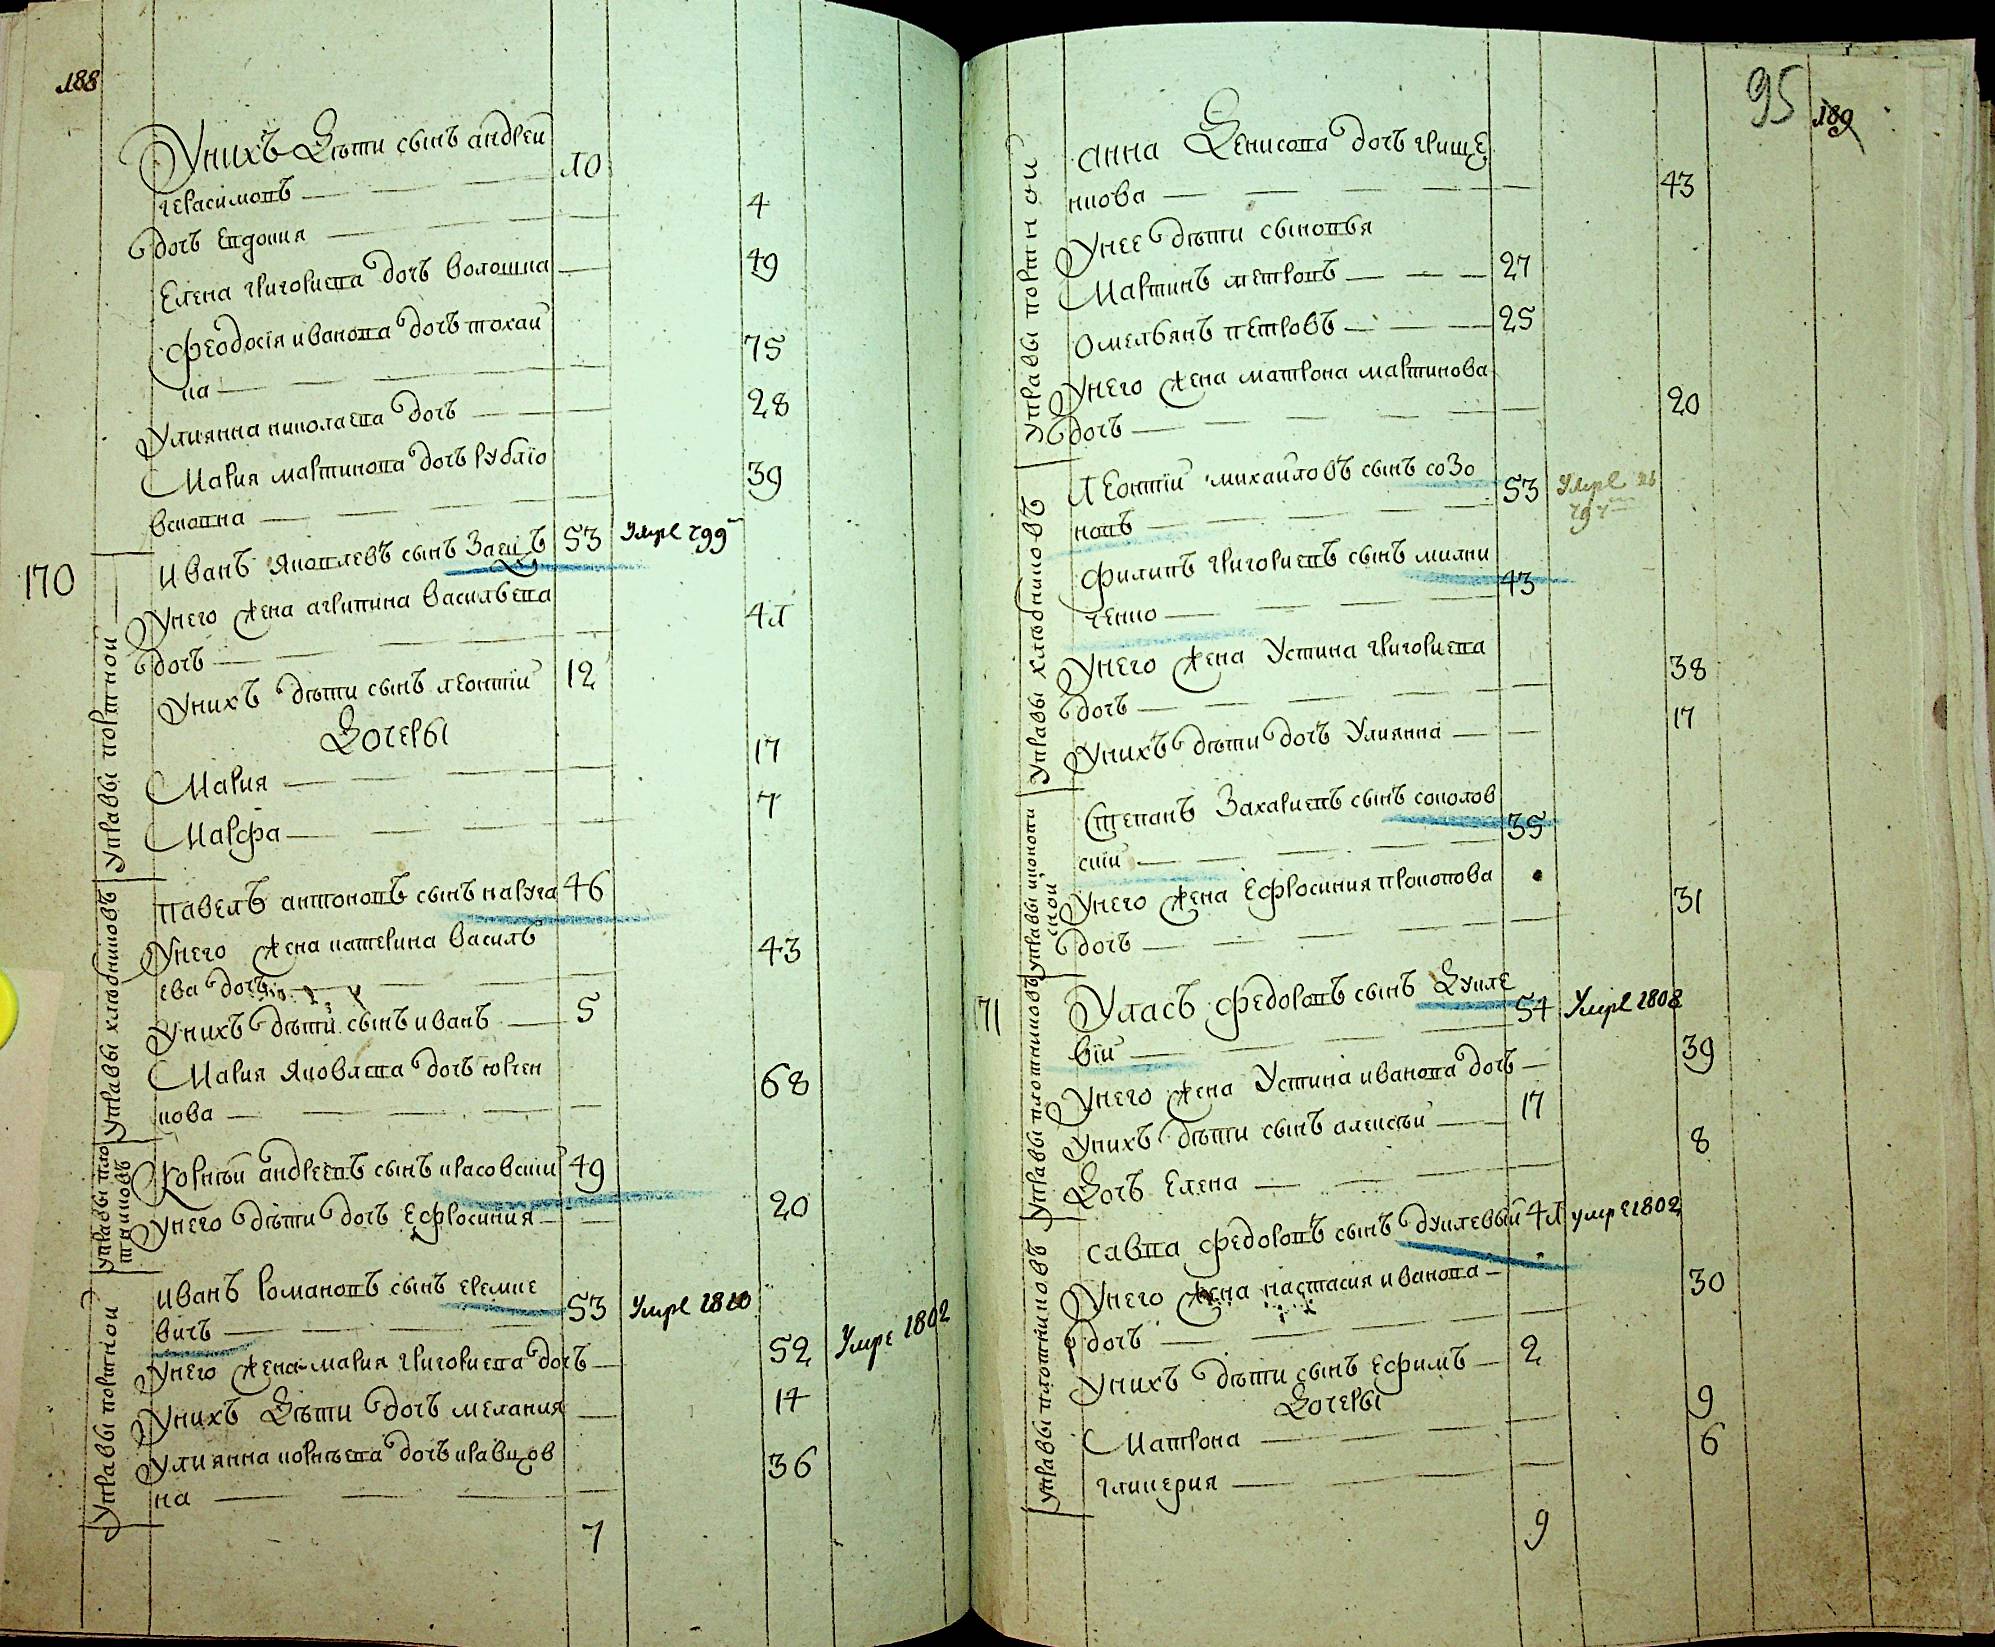 188
Унихъ Дѣти сынъ андрей 10
герасимовъ
дочь Евдокия 4
Елена григориева дочь волошка 49
Феодосія иванова дочь токаи
ка 75
Улиянна николаева дочь 28
Мария мартинова дочь рубліо
вскопна 39
170
Управы портной
Иванъ Яковлевъ сынъ Заецъ 53 Умре 799
Унего жена агрипина васильева
дочь 41
Унихъ дѣти сынъ леонтіи 12
Дочеры
Мария 17
Марфа 7
Управы хлѣбниковъ
Павелъ антоновъ сынъ каруча 46
Унего жена катерина василь
ева дочь 43
Унихъ дѣти сынъ иванъ 5
Мария Яковлева дочь юрчен
кова 68
Управы пло
тниковъ
Корнѣй андреевъ сынъ красовскии 49
Унего дѣти дочь Ефросиния 20
Управы портной
Иванъ романовъ сынъ еремке
вичъ 53 Умре 1810
Унего жена мария григориева дочь 52 Умре 1802
Унихъ Дѣти дочь мелания 14
Улиянна корнѣева дочь кравцов
на 36
7
95 189
Управы портной
анна Денисова дочь грище
нкова 43
Унее дѣти сыновья
Мартинъ петровъ 27
Омельянъ петровъ 25
Унего жена матрона мартинова
дочь 20
Управы хлѣбниковъ
Леонтіи михаиловъ сынъ созо
новъ 53 Умре
Филипъ григориевъ сынъ милни
ченко 43
Унего жена Устина григориева
дочь 38
Унихъ дѣти дочь Улиянна 17
Управы иконопи
сной
Степанъ Захариевъ сынъ соколов
скіи 35
Унего жена Ефросиния прокопова
дочь 31
71
Управы плотниковъ
Уласъ федоровъ сынъ Дукле
віи 54 Умре 1808
Унего жена Устина иванова дочь 39
Унихъ дѣти сынъ алексѣи 17
Дочь Елена 8
Управы плотниковъ
Савва федоровъ сынъ дуклевый 41 умре 1802
Унего жена настасия иванова
дочь 30
Унихъ дѣти сынъ Ефимъ 2
Дочеры
Матрона 9
гликерия 6
9